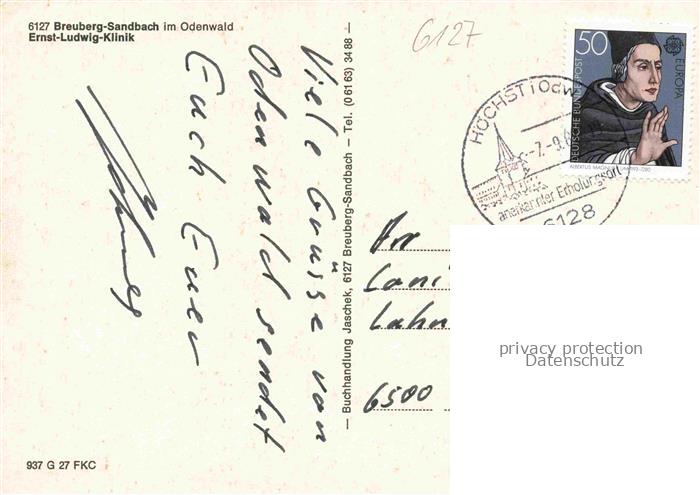 6127 Breuberg-Sandbach im Odenwald
Ernst-Ludwig-Klinik
Viele Grüsse von
Odenwald sendet
Euch Euer
937 G 27 FKC
— Buchhandlung Jaschek, 6127 Breuberg-Sandbach — Tel. (0 61 63) 34 88 —
6127
HÖCHST i Odw
anerkannter Erholungsort
6128
50
DEUTSCHE BUNDESPOST
EUROPA
ALBERTUS MAGNUS
An
Lahn
6500
privacy protection
Datenschutz